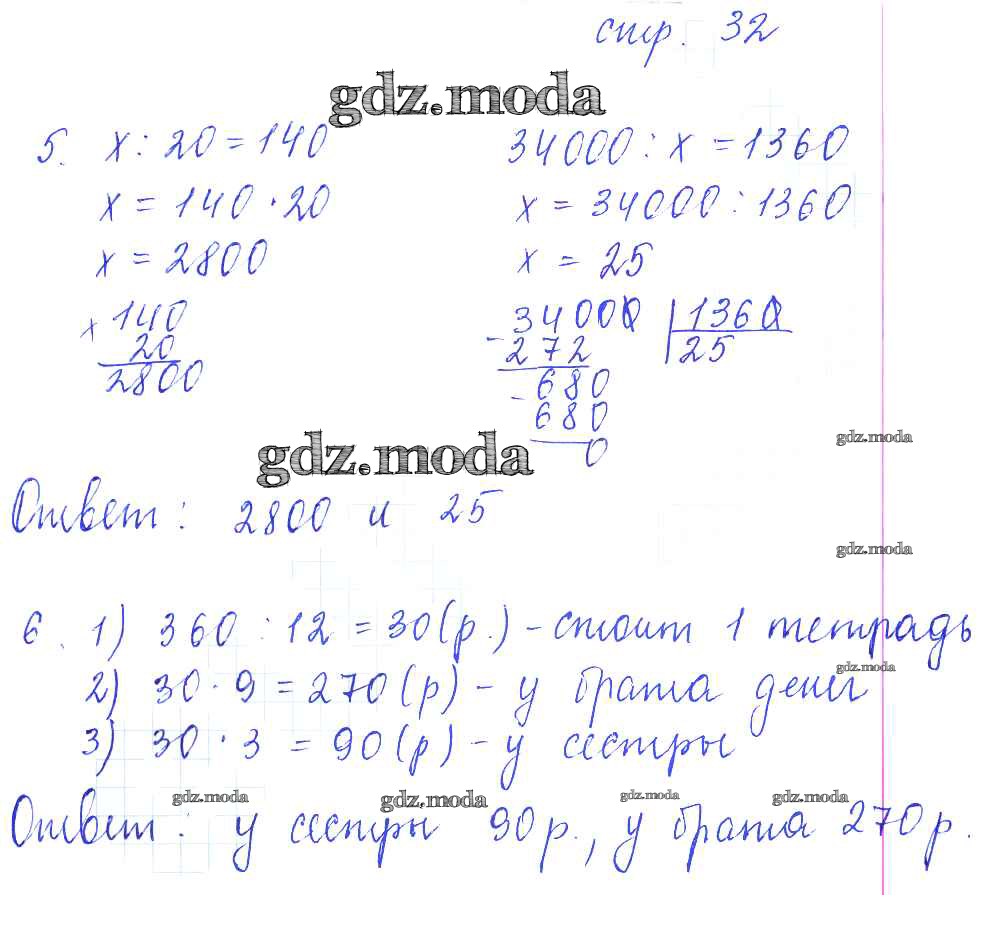 стр. 32
gdz.moda
5. x : 20 = 140
x = 140 · 20
x = 2800
× 140
20
2800
34000 : x = 1360
x = 34000 : 1360
x = 25
34000 | 1360
- 272 | 25
- 680
680
0
gdz.moda
gdz.moda
Ответ: 2800 и 25
gdz.moda
6. 1) 360 : 12 = 30 (р.) - стоит 1 тетрадь
gdz.moda
2) 30 · 9 = 270 (р) - у брата денег
3) 30 · 3 = 90 (р) - у сестры
gdz.moda gdz.moda gdz.moda gdz.moda
Ответ: у сестры 90 р., у брата 270 р.